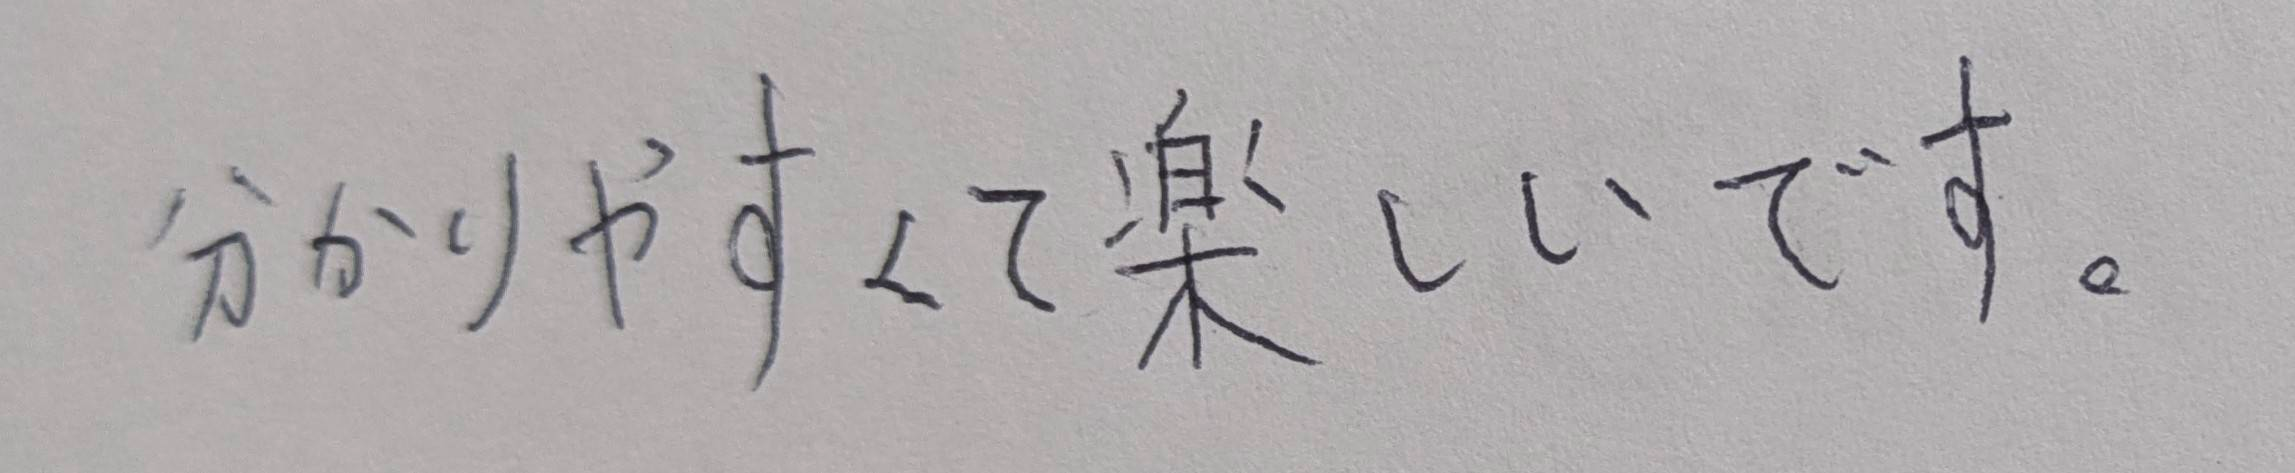 分かりやすくて楽しいです。